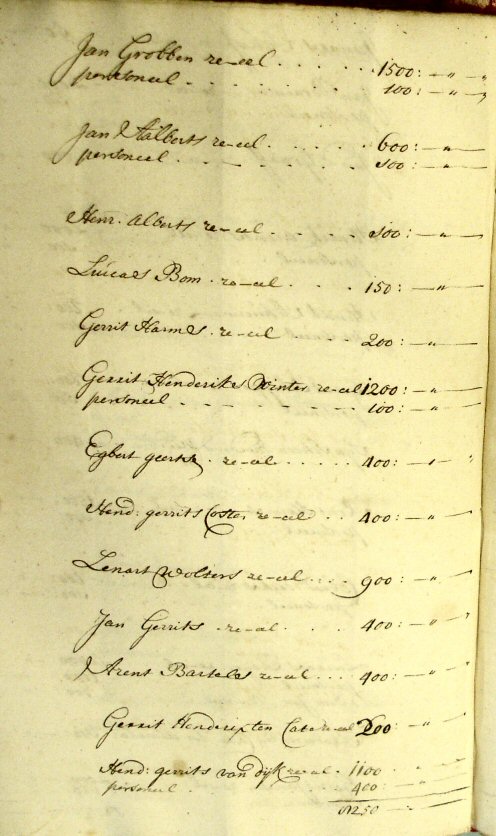 Jan Grobben re-eel . . . . . 1500: — " — "
personeel . . . . . 100: — " — "
Jan Aalberts re-eel . . . . . 600: — " —
personeel . . . . . 100: — " —
Henr. Alberts re-eel . . . . 100: — " —
Lucaes Bom . re-eel . . . . 150: — " —
Gerrit Harmes . re-eel 200: — " —
Gerrit Henderikes Winter re-eel 1200: — " —
personeel . . . . . 100: — " —
Egbert geerts . re-eel . . . . . 400: — " — "
Hend: gerrits Coster re-eel . . 400: — " —
Lenart Wolters re-eel . . . . 900: — " —
Jan Gerrits . re-eel . . . . 400: — " — "
Arent Bartels re-eel . . . 400: — " — "
Gerrit Henderix ten Cate re-eel 200: — " —
Hend: gerrits van dijk re-eel . 1100
personeel . 400: —